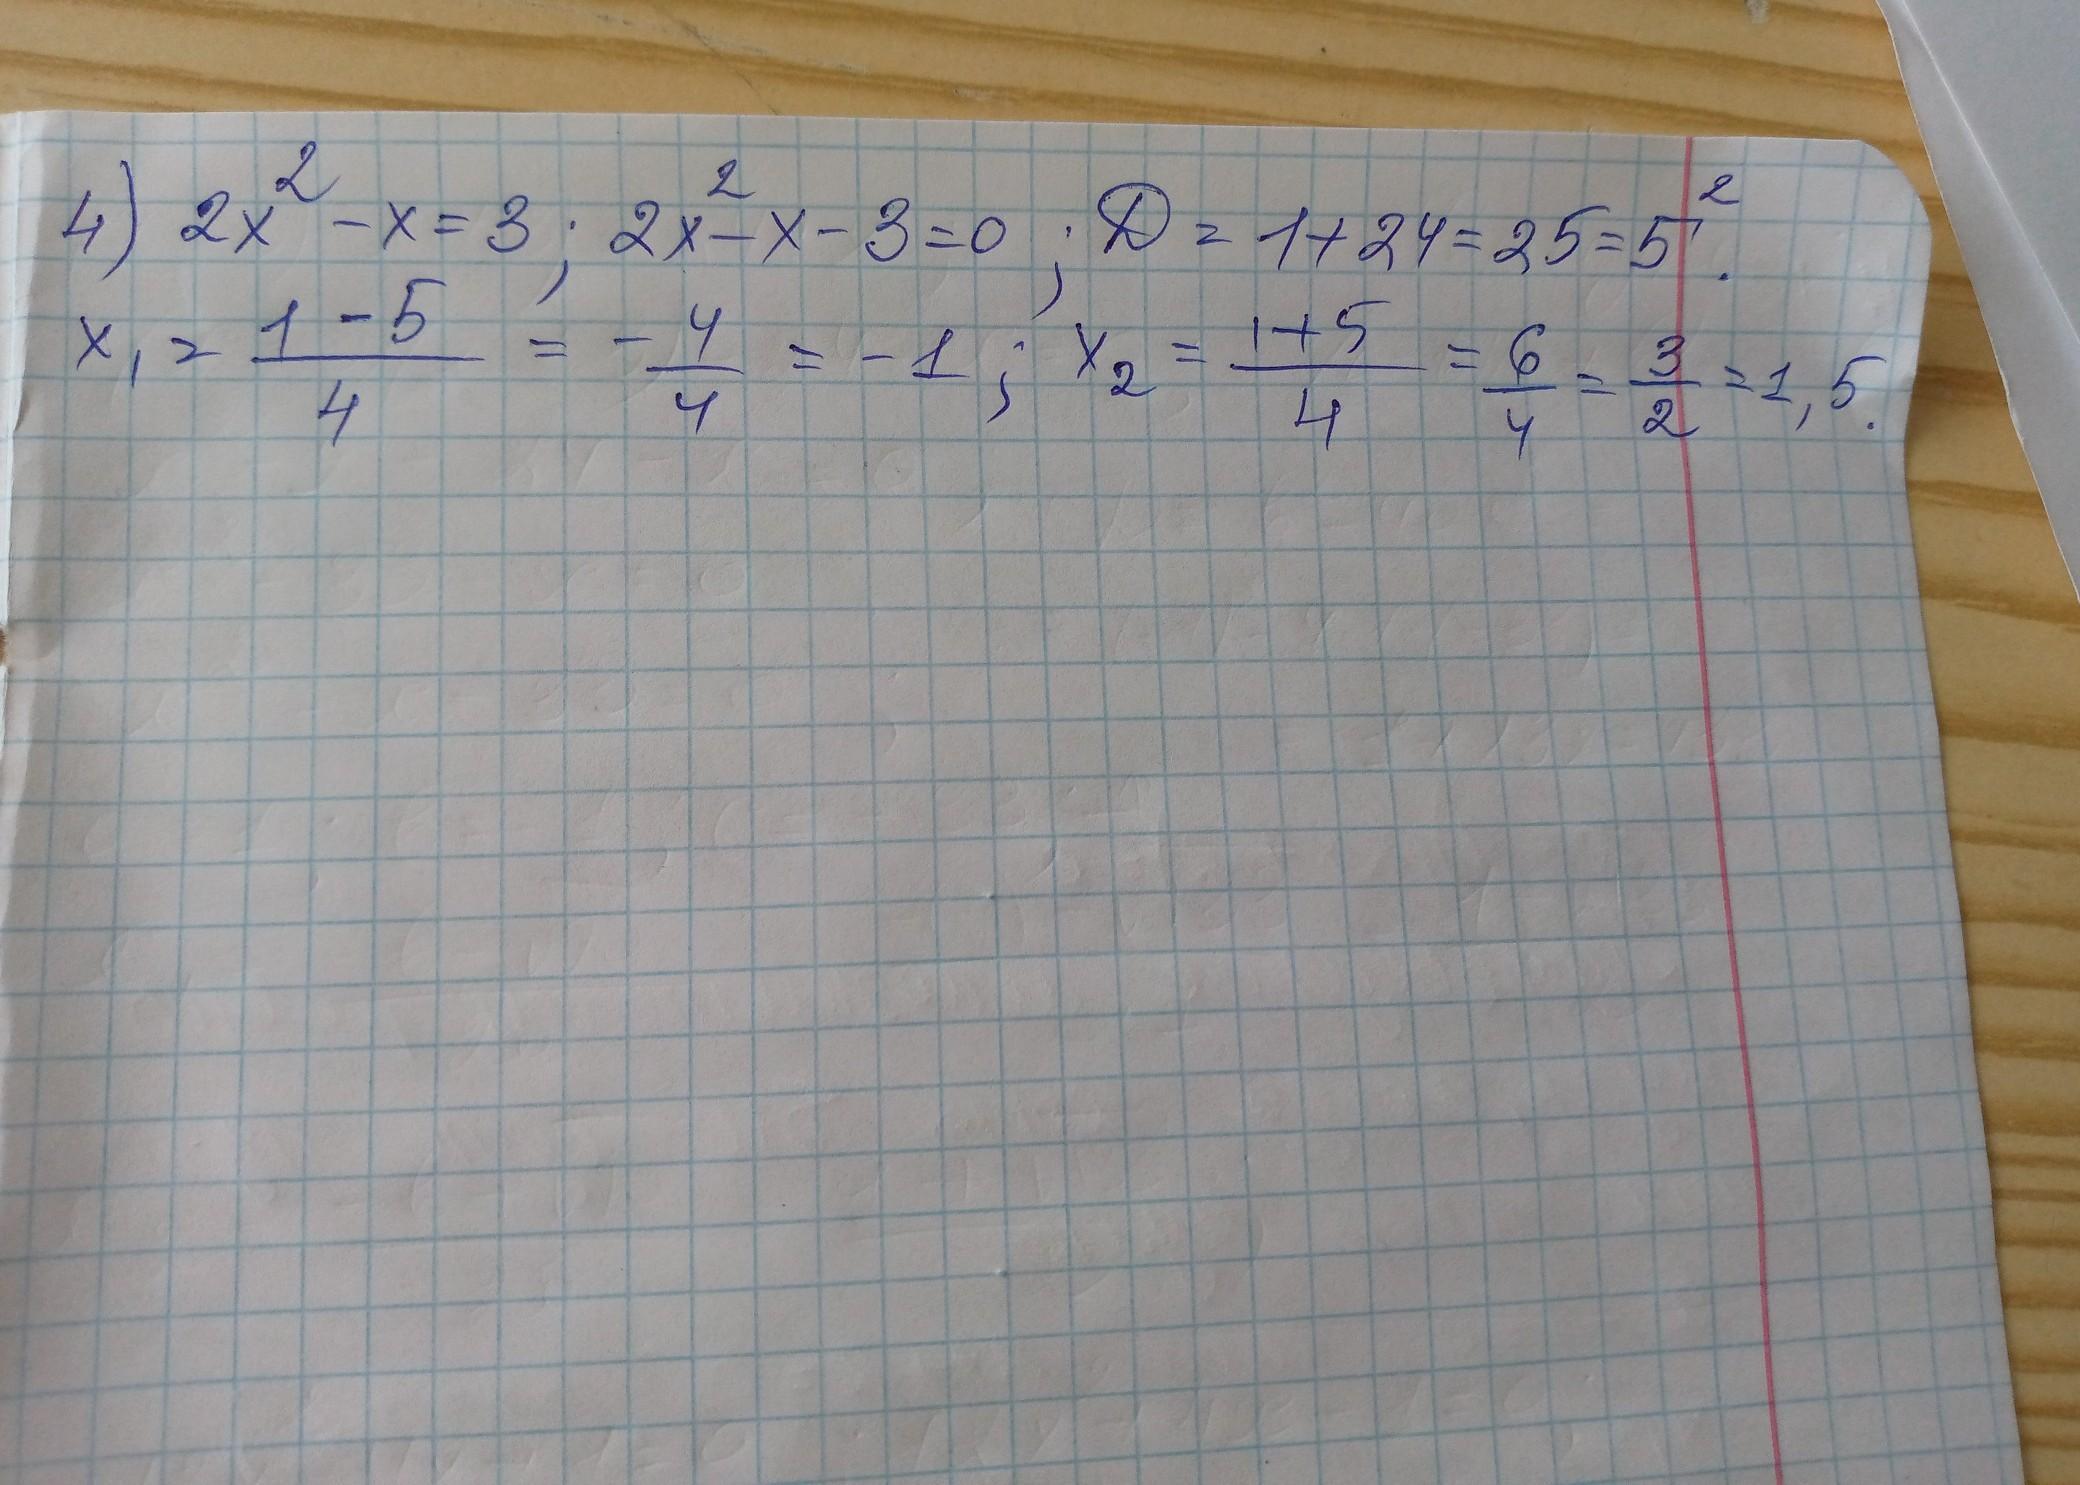 4) 2x² - x = 3; 2x² - x - 3 = 0; D = 1 + 24 = 25 = 5².
x₁ = (1 - 5)/4 = -4/4 = -1; x₂ = (1 + 5)/4 = 6/4 = 3/2 = 1,5.